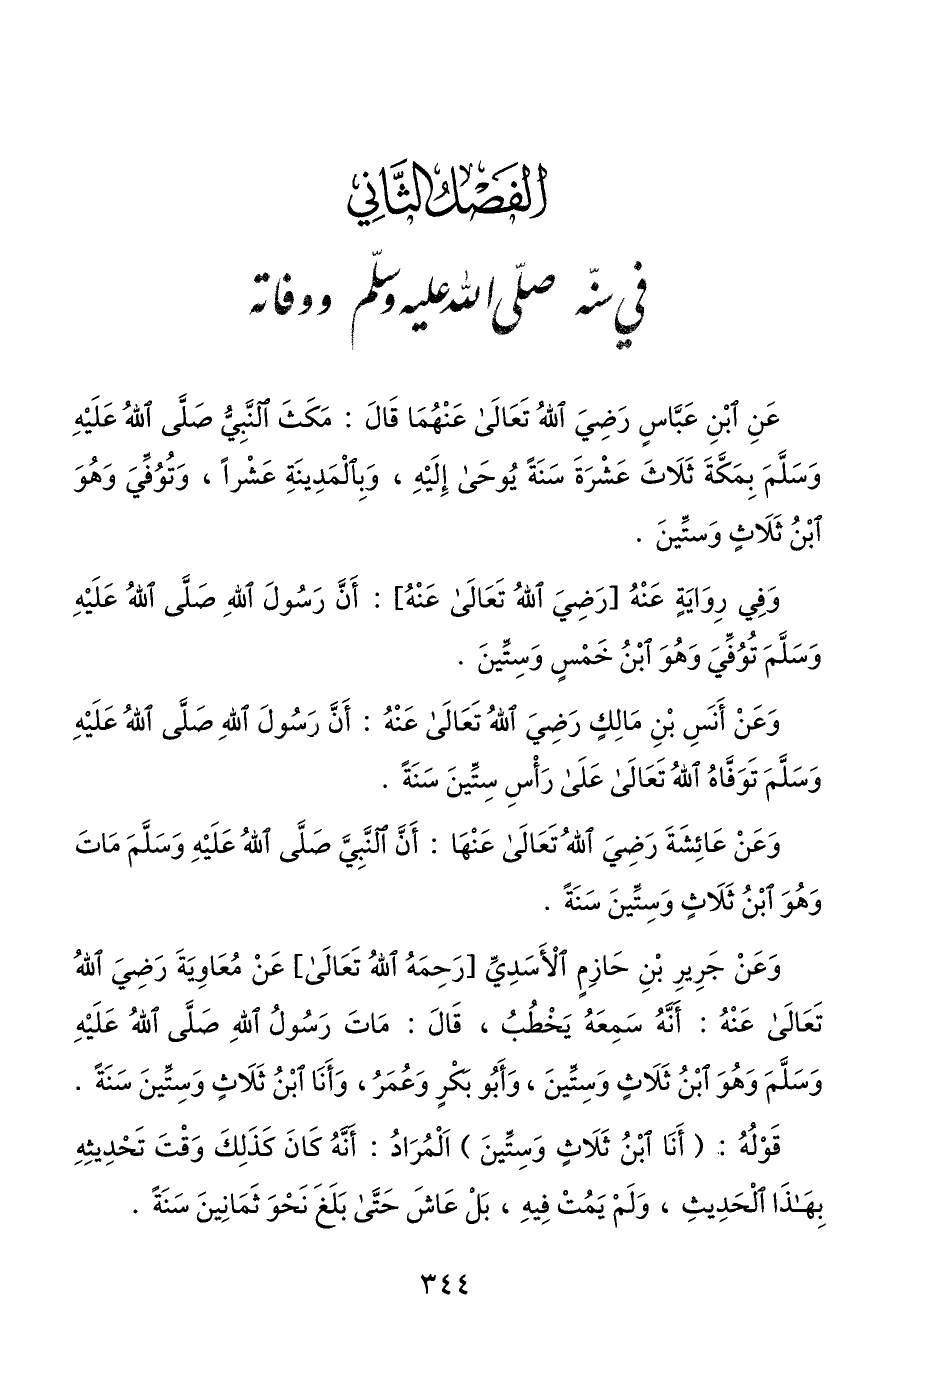 الْفَصْلُ الثَّانِي
في سنّه صلّى الله عليه وسلّم ووفاته
عَنِ ٱبْنِ عَبَّاسٍ رَضِيَ ٱللهُ تَعَالَىٰ عَنْهُمَا قَالَ : مَكَثَ ٱلنَّبِيُّ صَلَّى ٱللهُ عَلَيْهِ
وَسَلَّمَ بِمَكَّةَ ثَلَاثَ عَشْرَةَ سَنَةً يُوحَىٰ إِلَيْهِ ، وَبِٱلْمَدِينَةِ عَشْراً ، وَتُوُفِّيَ وَهُوَ
ٱبْنُ ثَلَاثٍ وَستِّينَ .
وَفِي رِوَايَةٍ عَنْهُ [رَضِيَ ٱللهُ تَعَالَىٰ عَنْهُ] : أَنَّ رَسُولَ ٱللهِ صَلَّى ٱللهُ عَلَيْهِ
وَسَلَّمَ تُوُفِّيَ وَهُوَ ٱبْنُ خَمْسٍ وَسِتِّينَ .
وَعَنْ أَنَسِ بْنِ مَالِكٍ رَضِيَ ٱللهُ تَعَالَىٰ عَنْهُ : أَنَّ رَسُولَ ٱللهِ صَلَّى ٱللهُ عَلَيْهِ
وَسَلَّمَ تَوَفَّاهُ ٱللهُ تَعَالَىٰ عَلَىٰ رَأْسِ سِتِّينَ سَنَةً .
وَعَنْ عَائِشَةَ رَضِيَ ٱللهُ تَعَالَىٰ عَنْهَا : أَنَّ ٱلنَّبِيَّ صَلَّى ٱللهُ عَلَيْهِ وَسَلَّمَ مَاتَ
وَهُوَ ٱبْنُ ثَلَاثٍ وَسِتِّينَ سَنَةً .
وَعَنْ جَرِيرِ بْنِ حَازِمٍ ٱلْأَسَدِيِّ [رَحِمَهُ ٱللهُ تَعَالَىٰ] عَنْ مُعَاوِيَةَ رَضِيَ ٱللهُ
تَعَالَىٰ عَنْهُ : أَنَّهُ سَمِعَهُ يَخْطُبُ ، قَالَ : مَاتَ رَسُولُ ٱللهِ صَلَّى ٱللهُ عَلَيْهِ
وَسَلَّمَ وَهُوَ ٱبْنُ ثَلَاثٍ وَسِتِّينَ ، وَأَبُو بَكْرٍ وَعُمَرُ ، وَأَنَا ٱبْنُ ثَلَاثٍ وَسِتِّينَ سَنَةً .
قَوْلُهُ : ( أَنَا ٱبْنُ ثَلَاثٍ وَسِتِّينَ ) اَلْمُرَادُ : أَنَّهُ كَانَ كَذَلِكَ وَقْتَ تَحْدِيثِهِ
بِهَـٰذَا ٱلْحَدِيثِ ، وَلَمْ يَمُتْ فِيهِ ، بَلْ عَاشَ حَتَّىٰ بَلَغَ نَحْوَ ثَمَانِينَ سَنَةً .
٣٤٤